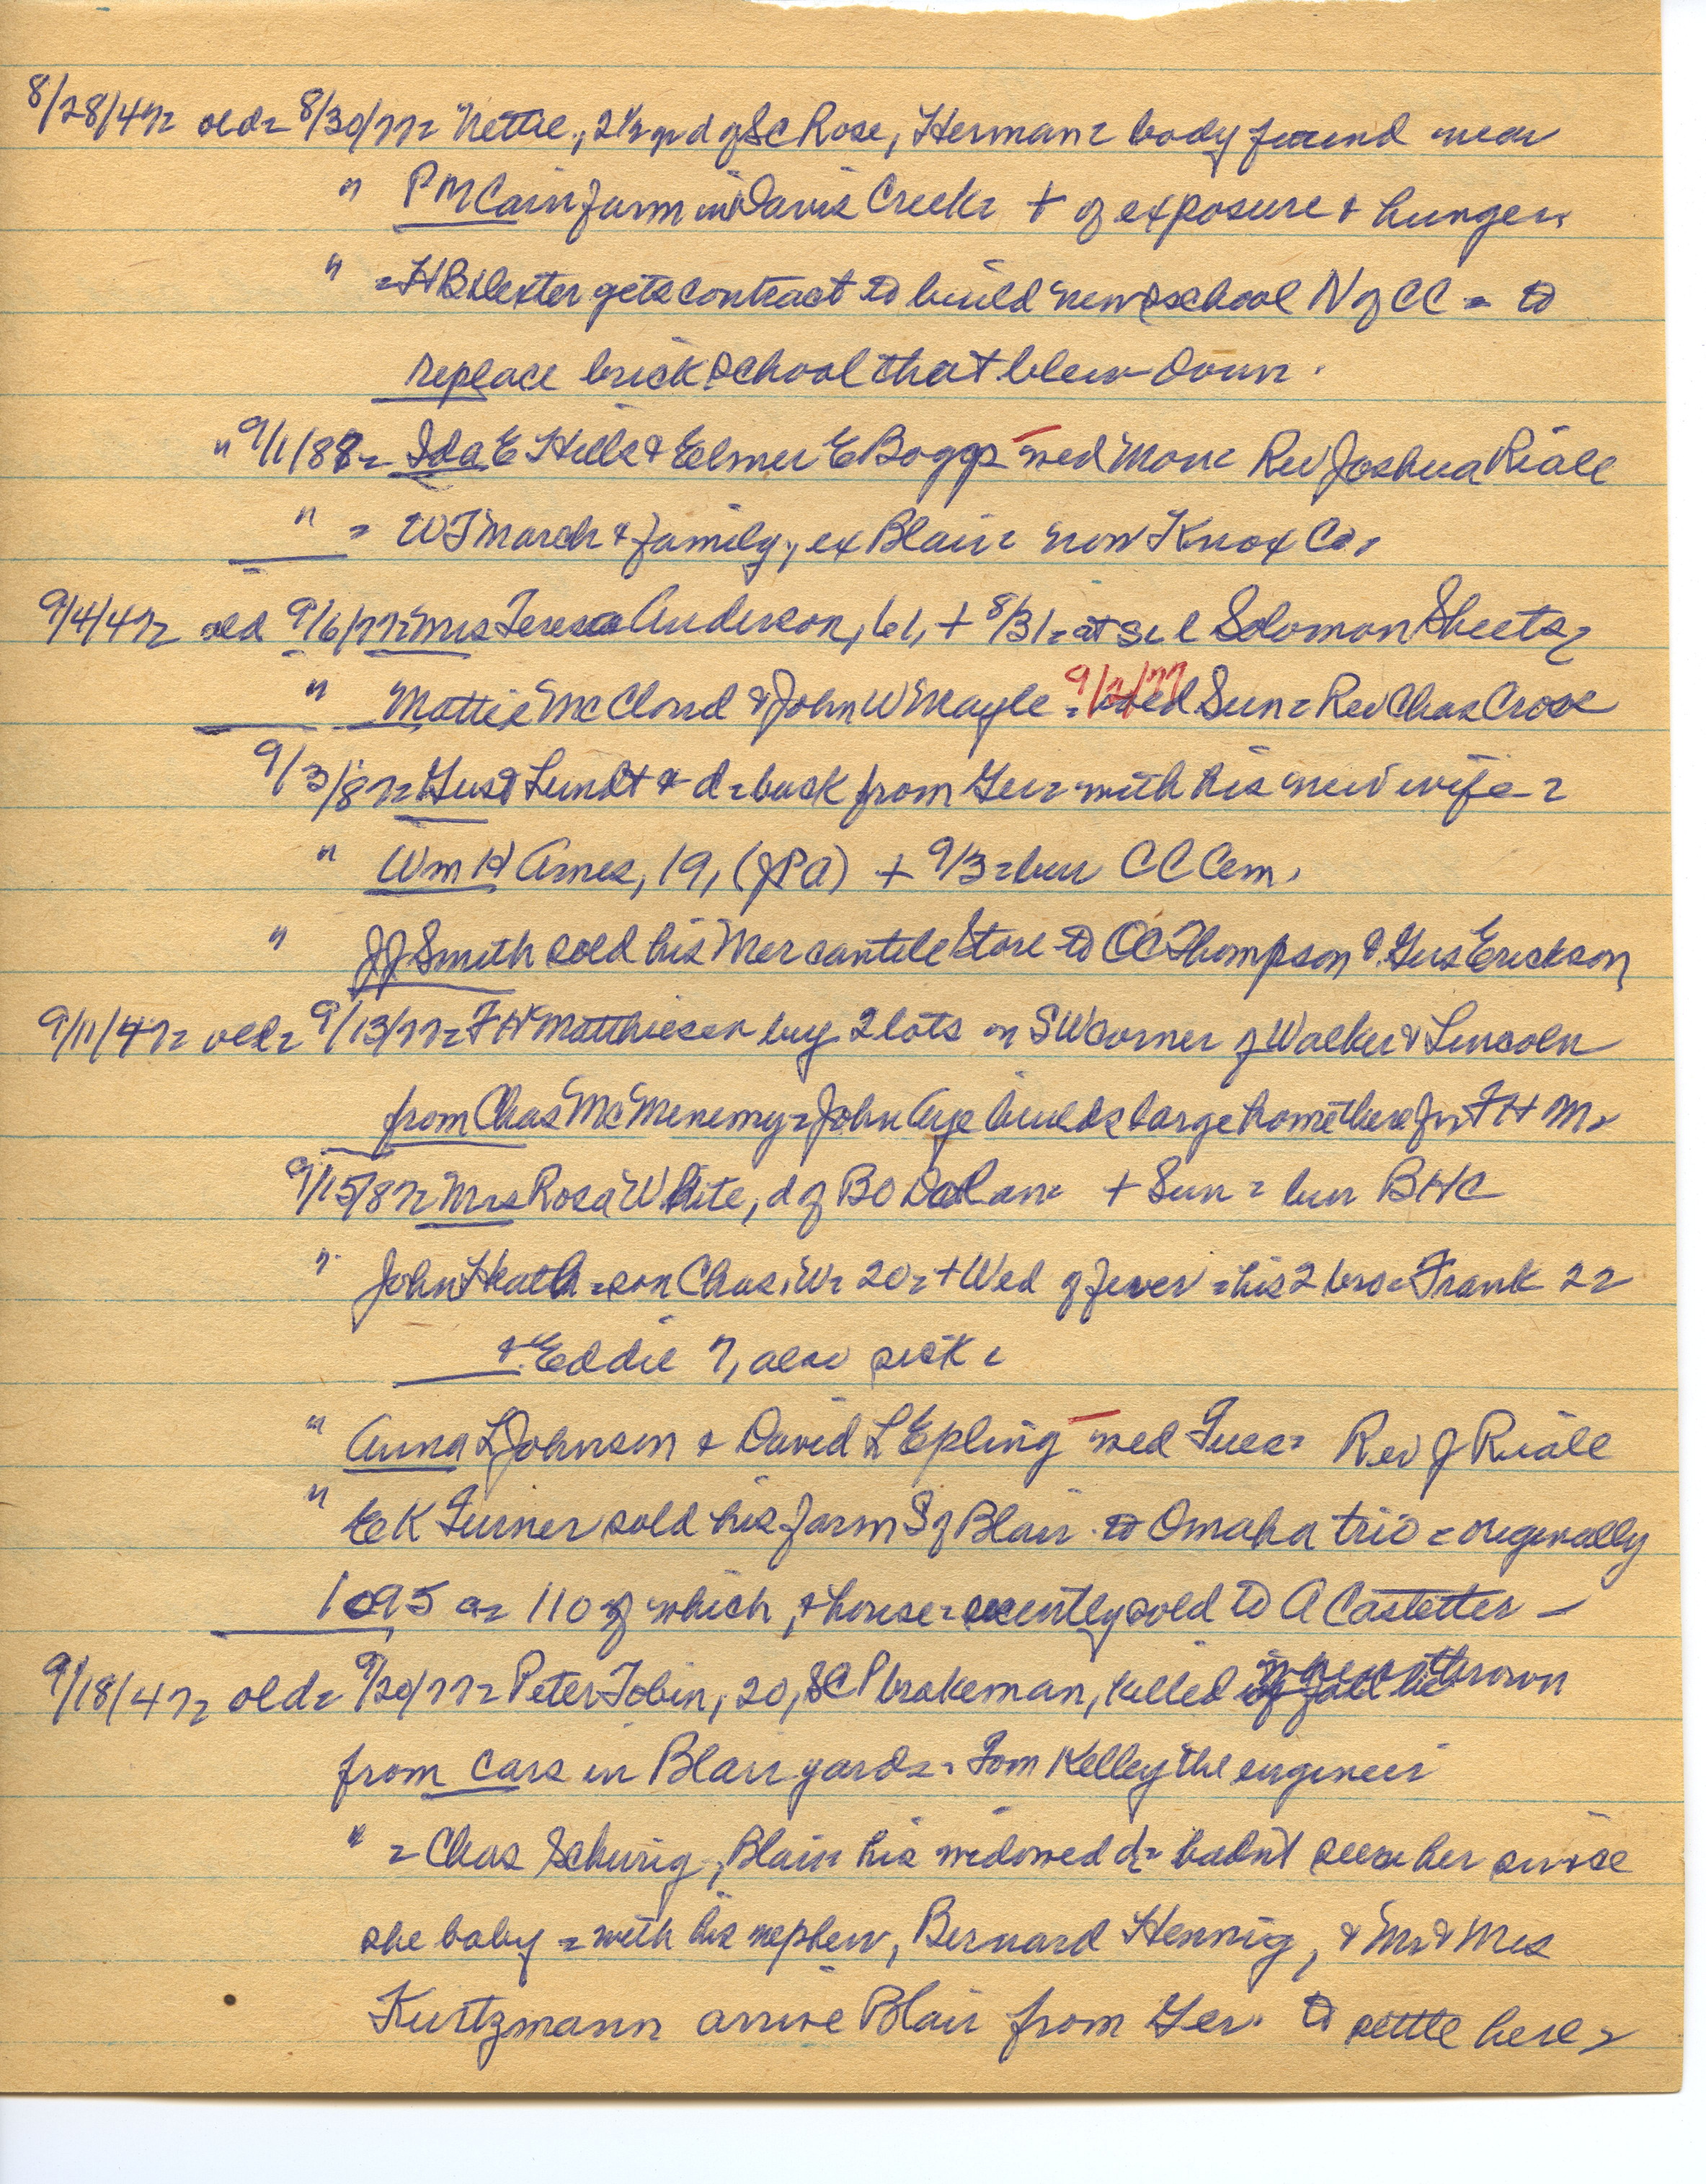 8/28/47= old= 8/30/77= Nettie, 2½ yr d of SC Rose, Herman= body found near
" PM Cain farm in Davis Creek= + of exposure & hunger.
" =HB Dexter gets contract to build new school N of CC = to
replace brick school that blew down.
" 9/1/87= Ida E Hills & Elmer E Boggs wed Mon= Rev Joshua Riale
" = WT March & family, ex Blair= now Knox Co,
9/4/47= old 9/6/77= Mrs Teresa Anderson, 61, + 8/31= at Solomon Sheets=
" Mattie McCloud & John W Mayle = 9/2/77 wed Sun= Rev Chas Cross
9/3/87= Gust Lundt & d= back from Ger= with his new wife=
" Wm H Ames, 19, (of Pa) + 9/3= bur CC Cem,
" JJ Smith sold his Mercantile Store to CC Thompson & Gus Erickson,
9/11/47= old= 9/13/77= FH Matthiesen buy 2 lots on SW corner of Walker & Lincoln
from Chas McMenemy= John Aye builds large home there for FH M=
9/15/87= Mrs Rosa White, d of BO + Sun= bur BHC
" John Heath=son Chas, W= 20= + Wed of fever =his 2 bro= Frank 22
& Eddie 7, also sick=
" Anna L Johnson & David L Epling wed Tues= Rev J Riale
" EK Turner sold his farm S of Blair to Omaha trio = originally
1095 a= 110 of which, & house= recently sold to A Castetter —
9/18/47= old= 9/20/77= Peter Tobin, 20, SCP brakeman, killed when thrown
from cars in Blair yards= Tom Kelley the engineer
" = Chas Schurig, Blair= his widowed d= hadn't seen her since
she baby = with his nephew, Bernard Hennig, & Mr & Mrs
Kurtzmann arrive Blair from Ger. to settle here=